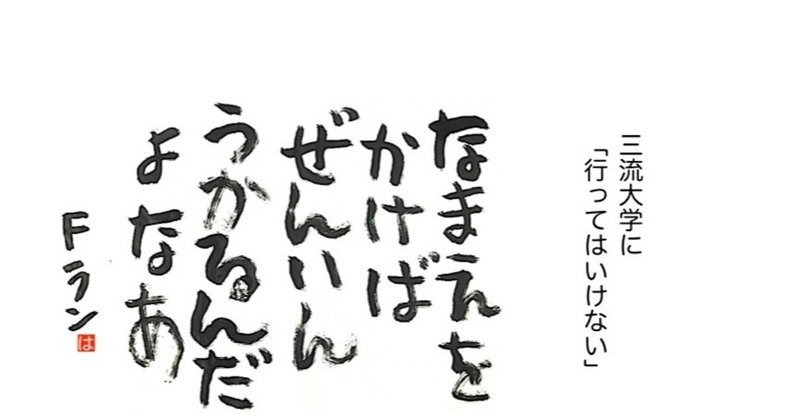 三流大学に
「行ってはいけない」
なまえを
かけば
ぜんいん
うかるんだ
よなあ
Fラン
は